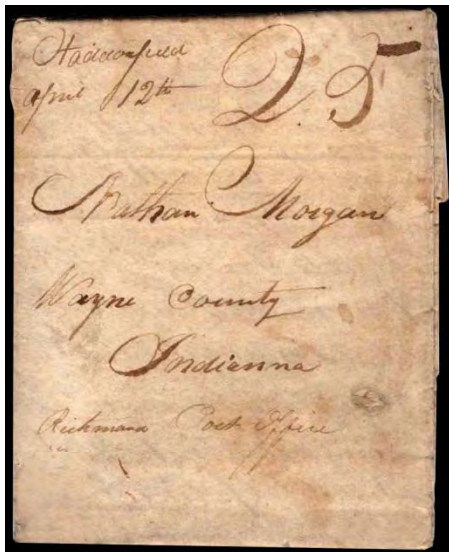 Haddonfield
April 12th
25
Nathan Morgan
Wayne County
Indianna
Richmond Post Office